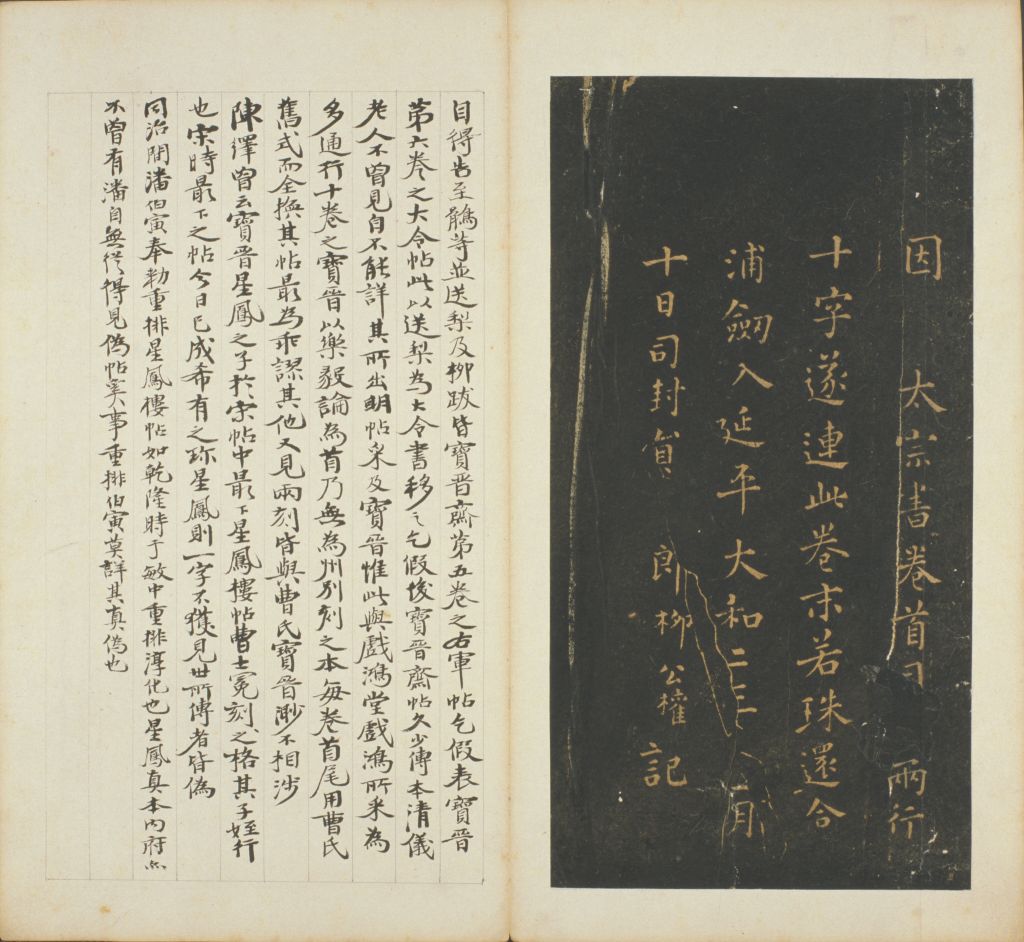 因太宗書卷首
兩行
十字遂連此卷末若珠還合
浦劒入延平大和二年
月
十日司封員郎柳公權記
目得告至鵝等並送梨及柳跋皆寶晉齋第五卷之右軍帖乞假表寶晉
第六卷之大令帖此以送梨為大令書移之乞假後寶晉齋帖久少傳本清儀
老人不曾見自不能詳其所出明帖采及寶晉惟此與戲鴻堂戲鴻所采為
多通行十卷之寶晉以樂毅論為首乃無為州別刻之本每卷首尾用曹氏
舊式而全換其帖最為乖謬其他又見兩刻皆與曹氏寶晉渺不相涉
陳繹曾云寶晉星鳳之子於宋帖中最下星鳳樓帖曹士冕刻之格其子姪行
也宋時最下之帖今日已成希有之珍星鳳則一字不獲見世所傳者皆偽
同治間潘伯寅奉勅重排星鳳樓帖如乾隆時于敏中重排淳化也星鳳真本內府亦
不曾有潘自無從得見偽帖冥事重排伯寅莫詳其真偽也